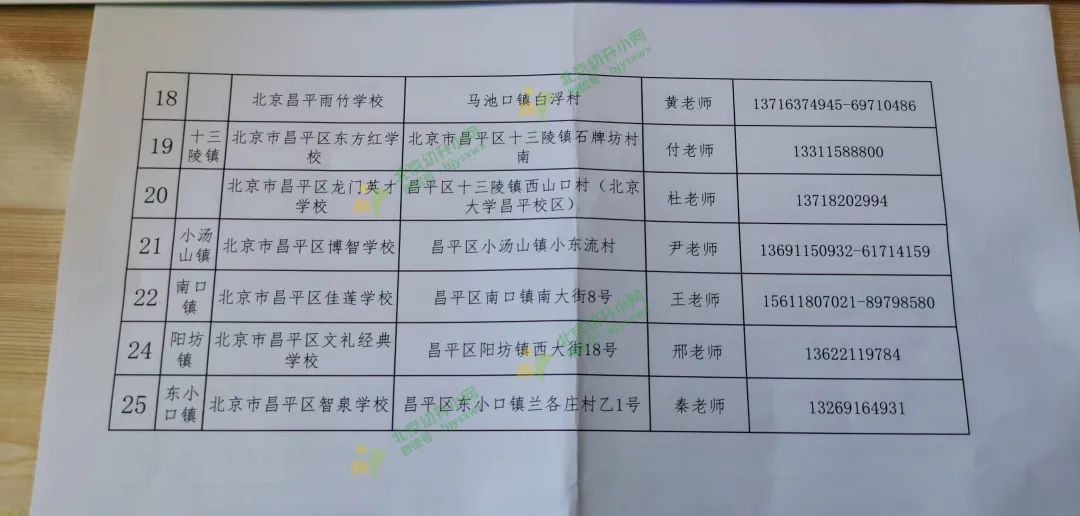 18 北京昌平雨竹学校 马池口镇白浮村 黄老师 13716374945-69710486
19 十三 北京市昌平区东方红学 北京市昌平区十三陵镇石牌坊村 付老师 13311588800
陵镇 校 南
20 北京市昌平区龙门英才 昌平区十三陵镇西山口村（北京 杜老师 13718202994
学校 大学昌平校区）
21 小汤 北京市昌平区博智学校 昌平区小汤山镇小东流村 尹老师 13691150932-61714159
山镇
22 南口 北京市昌平区佳莲学校 昌平区南口镇南大街8号 王老师 15611807021-89798580
镇
24 阳坊 北京市昌平区文礼经典 昌平区阳坊镇西大街18号 邢老师 13622119784
镇 学校
25 东小 北京市昌平区智泉学校 昌平区东小口镇兰各庄村乙1号 秦老师 13269164931
口镇
北京幼升小网
微信号：bjysxwx
北京幼升小网
微信号：bjysxwx
北京幼升小网
微信号：bjysxwx
北京幼升小网
微信号：bjysxwx